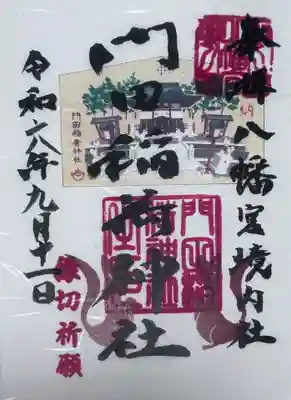 奉拝
八幡宮境内社
門田稲荷神社
門田稲荷神社
令和六年九月十一日
縁切祈願